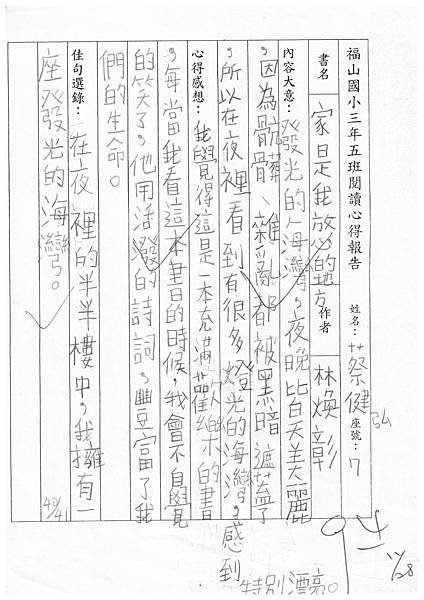 福山國小三年五班閱讀心得報告
姓名：蔡健弘 座號：7
書名 家是我放心的地方 作者 林煥彰
內容大意：發光的海灣，夜晚比白天美麗
，因為骯髒、雜亂都被黑暗遮蓋了
，所以在夜裡看到有很多燈光的海灣，感到
特別漂亮。
心得感想：我覺得這是一本充滿歡樂的書
，每當我看這本書的時候，我會不自覺
的笑了，他用活潑的詩詞，豐富了我
們的生命。
佳句選錄：在夜裡的半半樓中，我擁有一
座發光的海灣。